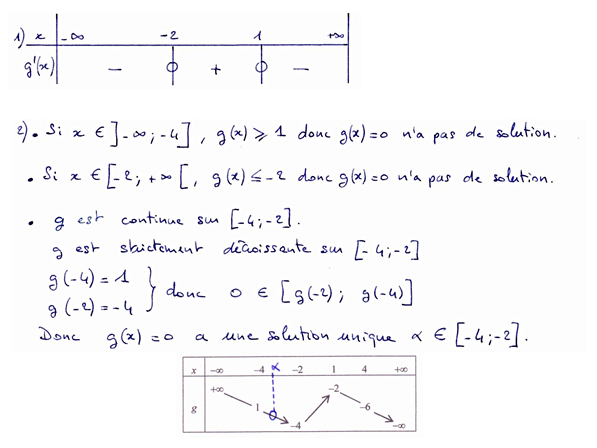 1) x | -∞ -2 1 +∞
g'(x) | - 0 + 0 -
2) • Si x ∈ ]-∞ ; -4] , g(x) ⩾ 1 donc g(x) = 0 n'a pas de solution.
• Si x ∈ [-2 ; +∞ [ , g(x) ⩽ -2 donc g(x) = 0 n'a pas de solution.
• g est continue sur [-4 ; -2].
g est strictement décroissante sur [-4 ; -2]
g(-4) = 1
g(-2) = -4 } donc 0 ∈ [g(-2) ; g(-4)]
Donc g(x) = 0 a une solution unique α ∈ [-4 ; -2].
x | -∞ -4 α -2 1 4 +∞
g | +∞ 1 0 -4 -2 -6 -∞